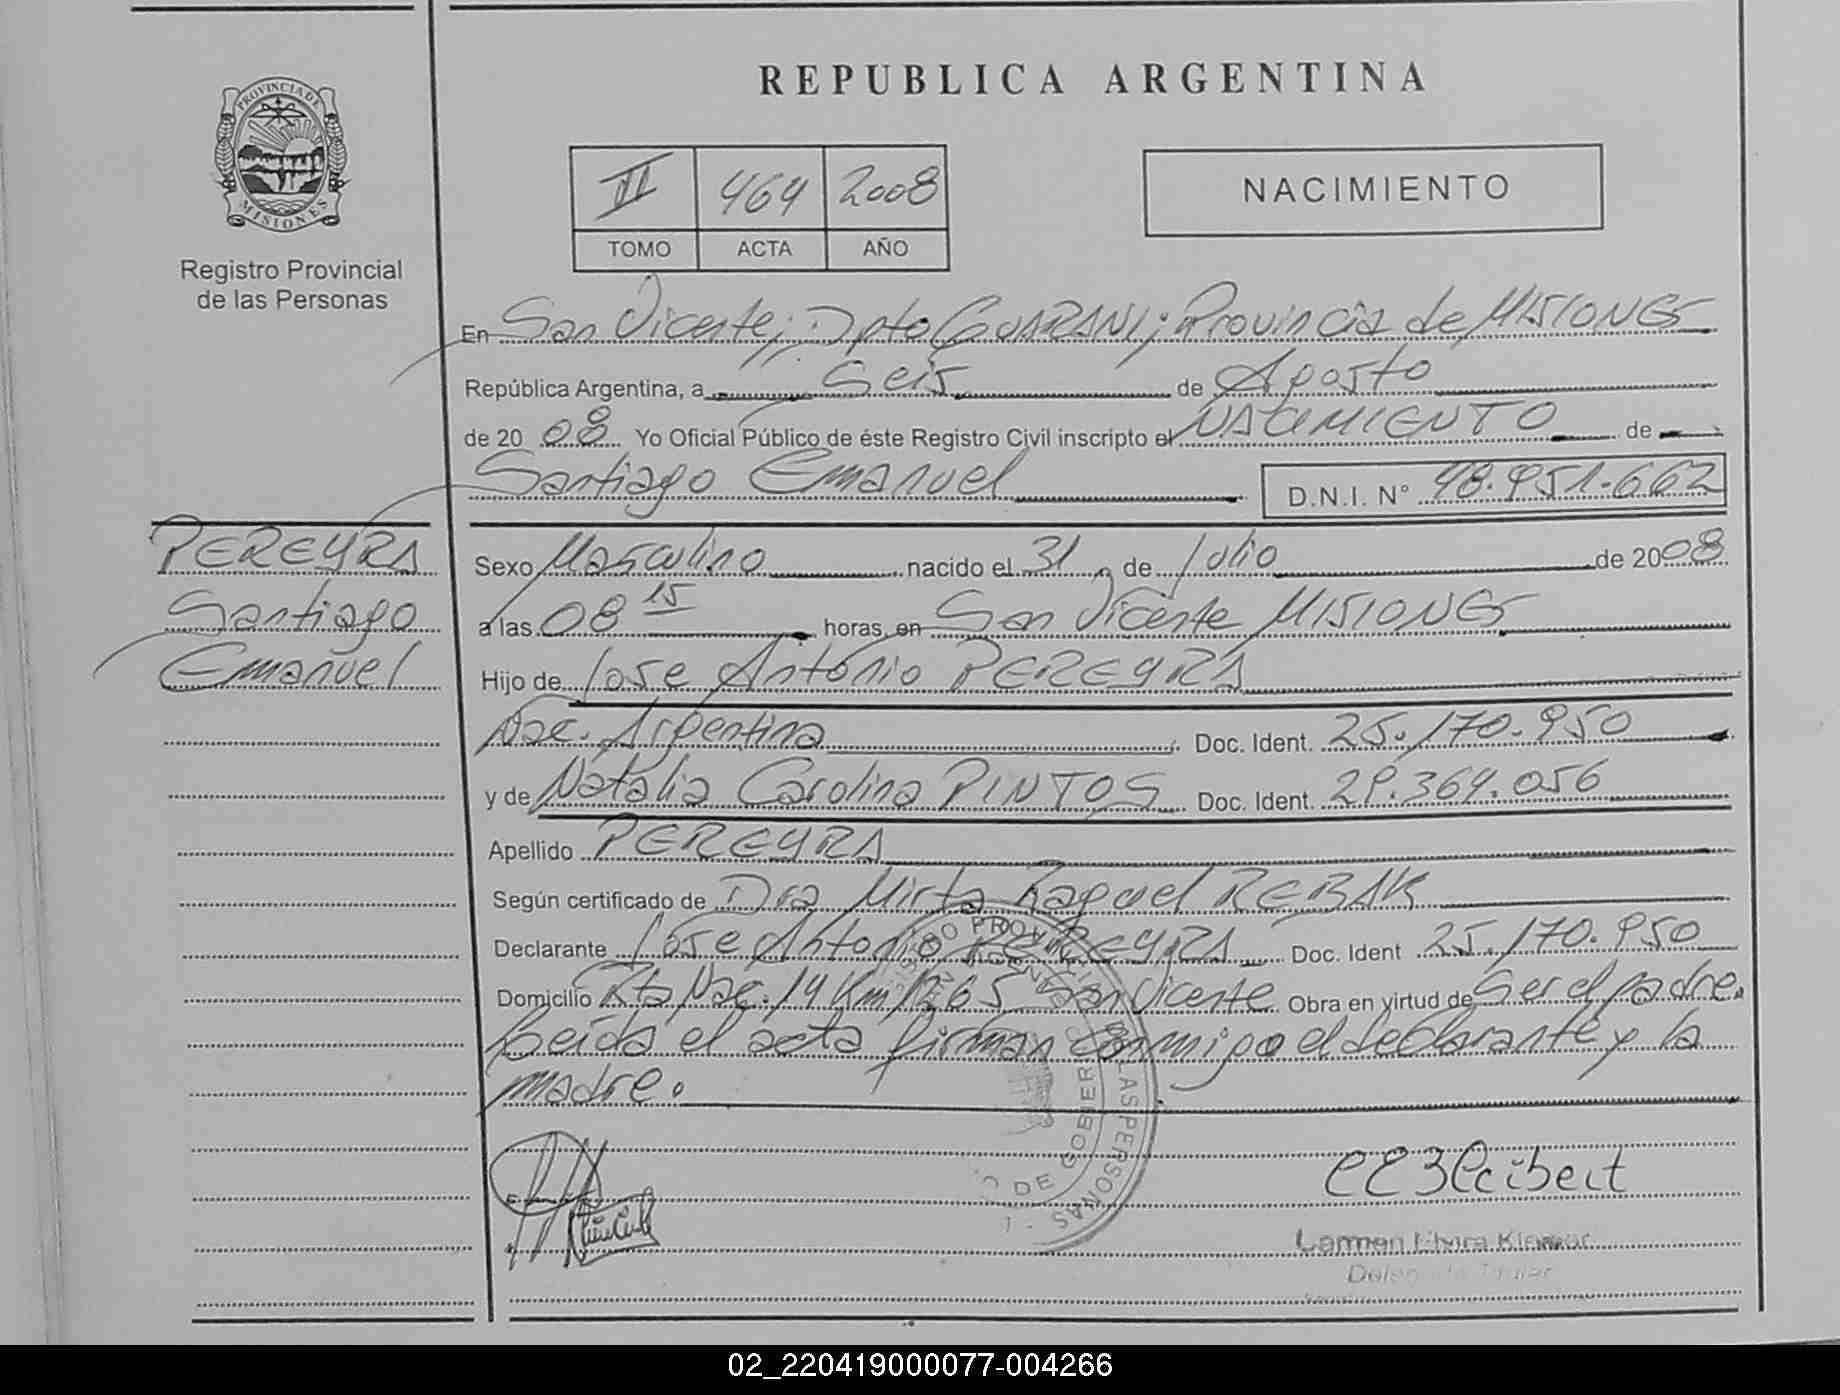 REPUBLICA ARGENTINA
PROVINCIA DE
MISIONES
Registro Provincial
de las Personas
II 464 2008
TOMO ACTA AÑO
NACIMIENTO
En San Vicente; Dpto GUARANI; Provincia de MISIONES
República Argentina, a Seis de Agosto
de 2008 Yo Oficial Público de éste Registro Civil inscripto el NACIMIENTO de
Santiago Emanuel D.N.I. Nº 48.951.662
PEREYRA
Santiago
Emanuel
Sexo Masculino nacido el 31 de Julio de 2008
a las 08 15 horas, en San Vicente MISIONES
Hijo de Jose Antonio PEREYRA
Nac. Argentina Doc. Ident. 25.170.950
y de Natalia Carolina PINTOS Doc. Ident. 29.364.056
Apellido PEREYRA
Según certificado de Dra Mirta Raquel REBAK
Declarante Jose Antonio PEREYRA Doc. Ident 25.170.950
Domicilio Rta Nac. 14 Km 1265 San Vicente Obra en virtud de Ser el padre.
Leída el acta firman conmigo el declarante y la
madre.
DE GOBIER
LAS PERSONAS
Carmen Elvira
02_220419000077-004266